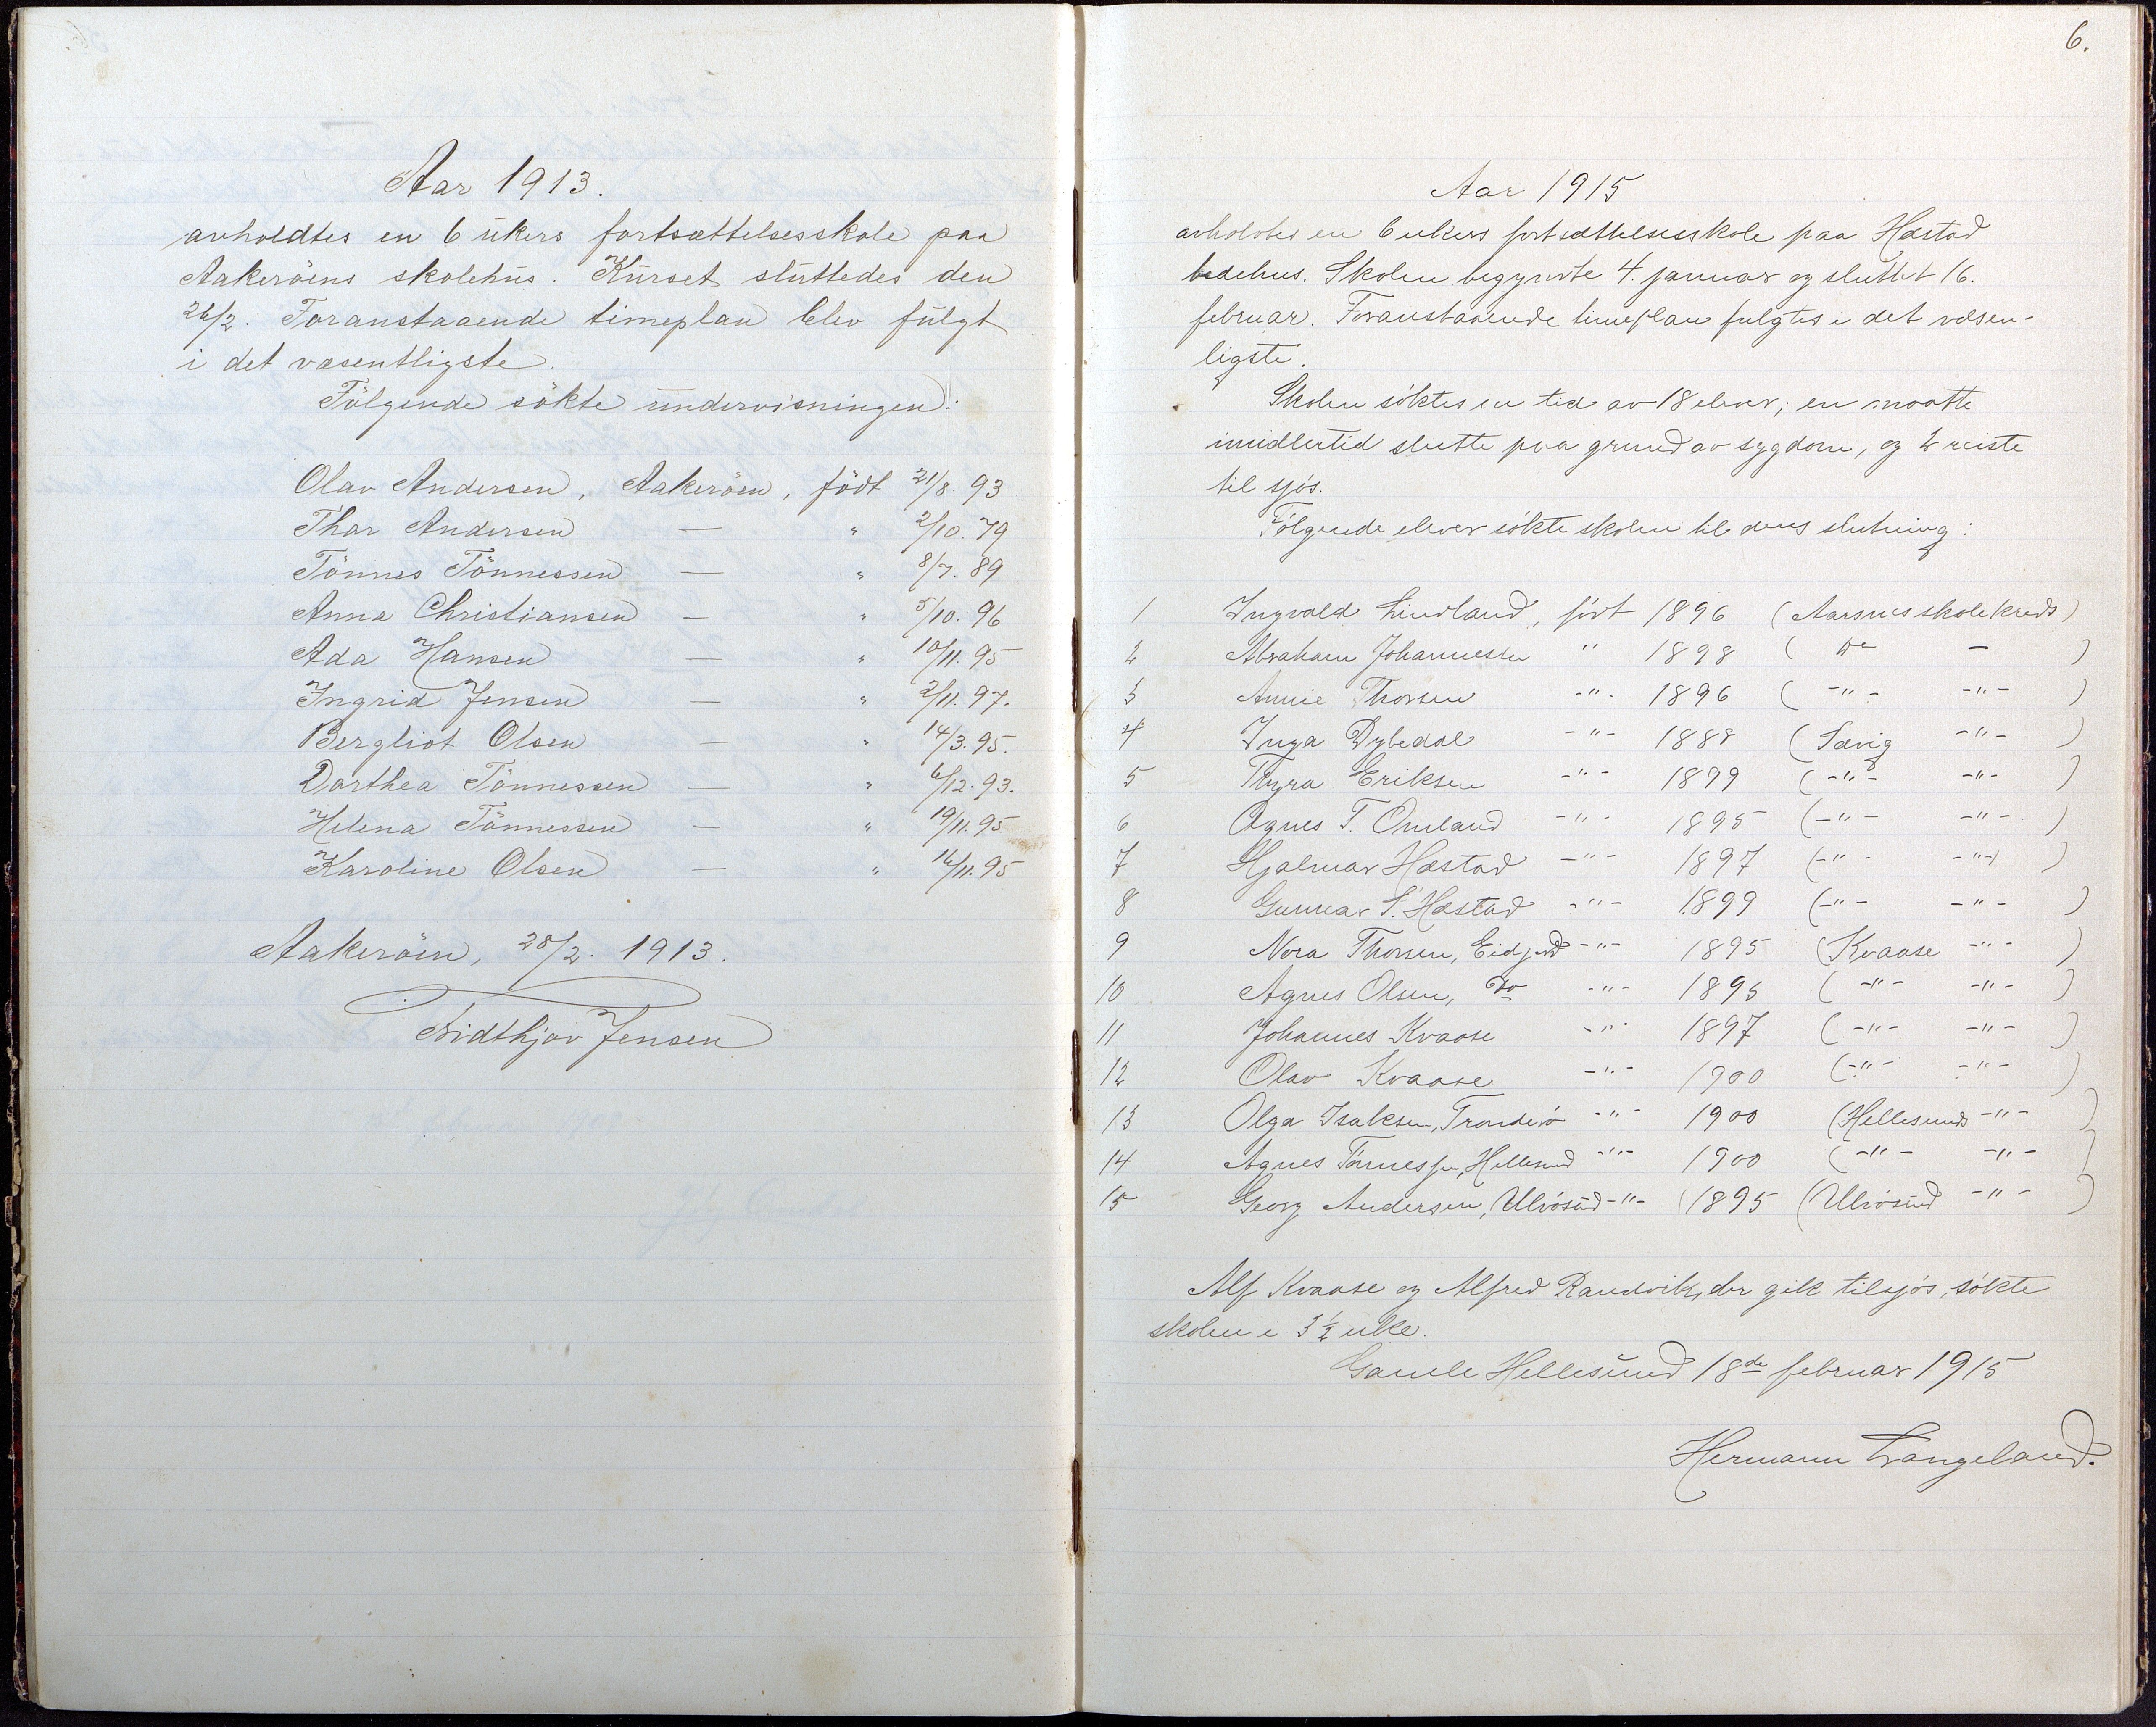 Aar 1913.
avholdtes en 6 ukers fortsættelsesskole paa
Aakeröens skolehus. Kurset sluttedes den
26/2. Foranstaaende timeplan blev fulgt
i det væsentligste.
Fölgende sökte undervisningen:
Olav Andersen, Aakeröen, födt 21/8. 93
Thor Andersen — " 2/10. 79
Tönnes Tönnessen — " 8/7. 89
Anna Christiansen — " 5/10. 96
Ada Hansen — " 10/11. 95
Ingrid Jensen — " 2/11. 97.
Bergliot Olsen — " 14/3. 95.
Dorthea Tönnessen — " 6/12. 93.
Helena Tönnessen — " 19/11. 95
Karoline Olsen — " 16/11. 95
Aakeröen, 28/2. 1913.
Fridthjov Jensen
6.
Aar 1915
avholdtes en 6 ukers fortsættelsesskole paa Hæstad
bedehus. Skolen begyndte 4. januar og sluttet 16.
februar. Foranstaaende timeplan fulgtes i det væsen-
ligste.
Skolen söktes en tid av 18 elever; en maatte
imidlertid slutte paa grund av sygdom, og 2 reiste
til sjös.
Fölgende elever sökte skolen til dens slutning:
1 Ingvald Lindland, födt 1896 (Aarsnes skolekreds)
2 Abraham Johannessen " 1898 ( do — )
3 Annie Thorsen -"- 1896 ( -"- -"- )
4 Inga Dybedal -"- 1888 (Sævig -"- )
5 Thyra Eriksen -"- 1899 ( -"- -"- )
6 Agnes T. Omland -"- 1895 ( -"- -"- )
7 Hjalmar Hæstad -"- 1897 ( -"- -"- )
8 Gunnar S. Hæstad -"- 1899 ( -"- -"- )
9 Nora Thorsen, Eidjord -"- 1895 (Kvaase -"- )
10 Agnes Olsen, do -"- 1895 ( -"- -"- )
11 Johannes Kvaase -"- 1897 ( -"- -"- )
12 Olav Kvaase -"- 1900 ( -"- -"- )
13 Olga Isaksen, Tronderö -"- 1900 (Hellesunds -"- )
14 Agnes Tönnessen, Hellesund -"- 1900 ( -"- -"- )
15 Georg Andersen, Ulvösund -"- 1895 (Ulvösund -"- )
Alf Kvaase og Alfred Randvik, der gik tilsjös, sökte
skolen i 3 ½ uke.
Gamle Hellesund 18de februar 1915
Hermann Langeland.